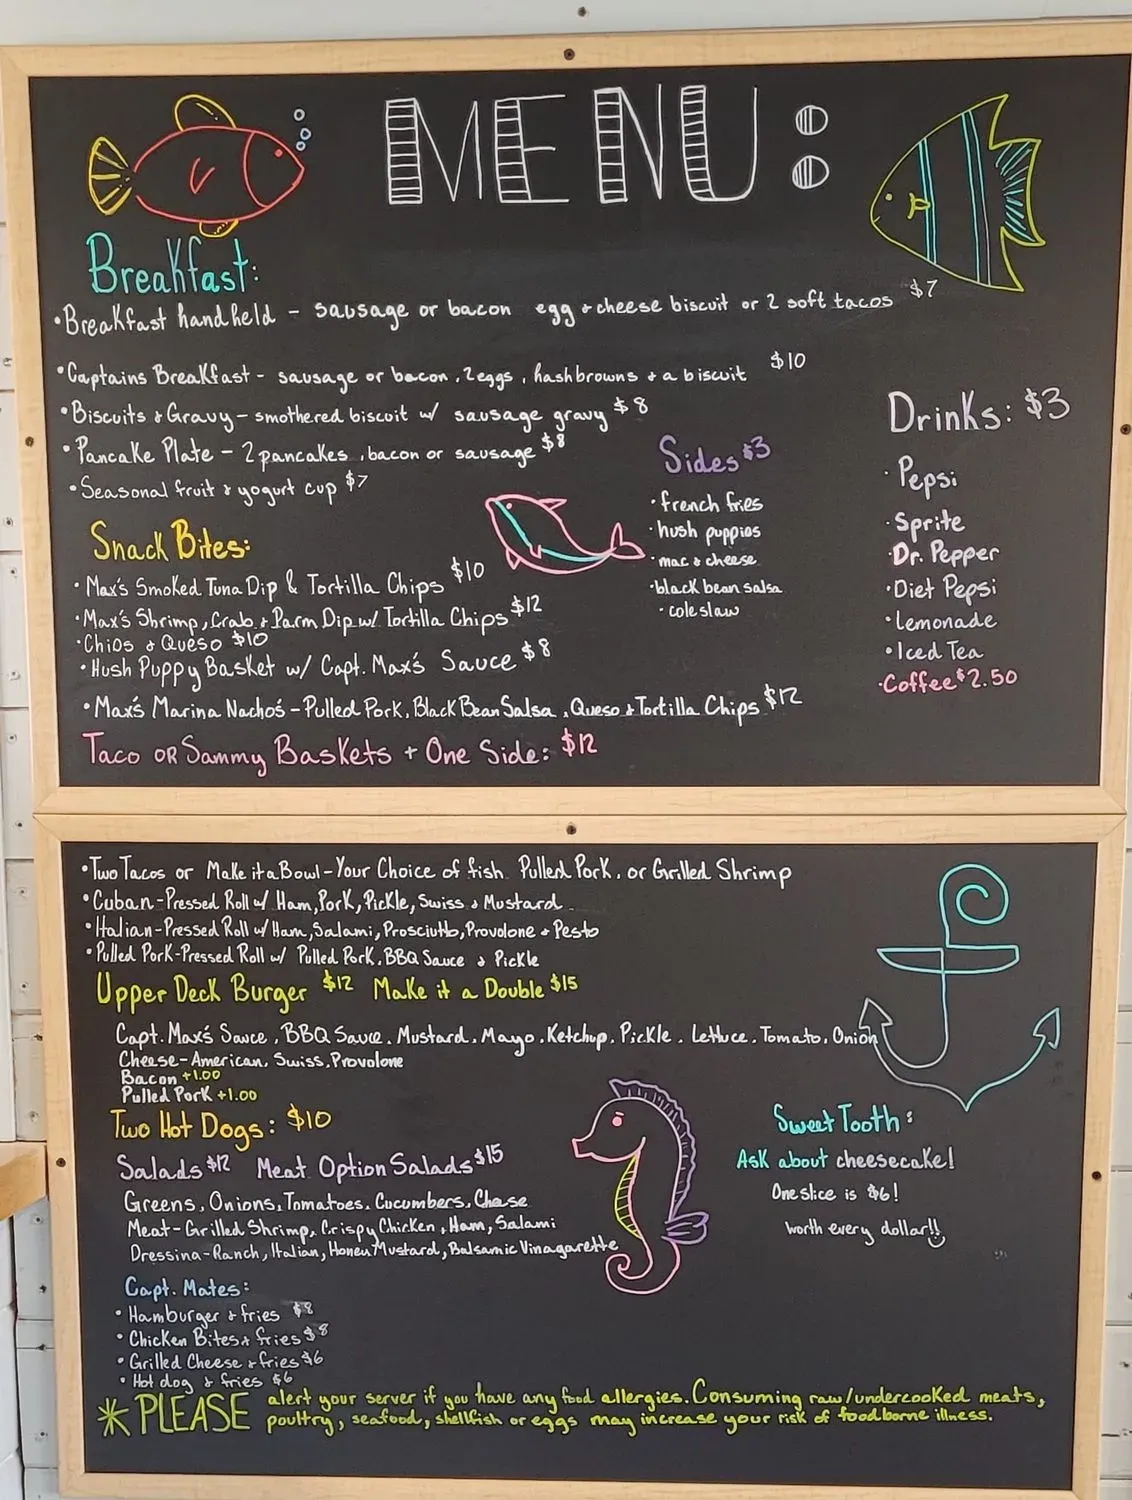 MENU:
Breakfast:
•Breakfast handheld - sausage or bacon egg + cheese biscuit or 2 soft tacos $7
•Captains Breakfast - sausage or bacon, 2 eggs, hashbrowns + a biscuit $10
•Biscuits & Gravy - smothered biscuit w/ sausage gravy $8
•Pancake Plate - 2 pancakes, bacon or sausage $8
•Seasonal fruit & yogurt cup $7
Snack Bites:
•Max's Smoked Tuna Dip & Tortilla Chips $10
•Max's Shrimp, Crab, + Parm Dip w/ Tortilla Chips $12
•Chips & Queso $10
•Hush Puppy Basket w/ Capt. Max's Sauce $8
•Max's Marina Nachos - Pulled Pork, Black Bean Salsa, Queso + Tortilla Chips $12
Taco or Sammy Baskets + One Side: $12
Sides $3
•french fries
•hush puppies
•mac & cheese
•black bean salsa
•coleslaw
Drinks: $3
•Pepsi
•Sprite
•Dr. Pepper
•Diet Pepsi
•Lemonade
•Iced Tea
•Coffee $2.50
•Two Tacos or Make it a Bowl - Your Choice of fish, Pulled Pork, or Grilled Shrimp
•Cuban - Pressed Roll w/ Ham, Pork, Pickle, Swiss & Mustard
•Italian - Pressed Roll w/ Ham, Salami, Prosciutto, Provolone + Pesto
•Pulled Pork - Pressed Roll w/ Pulled Pork, BBQ Sauce & Pickle
Upper Deck Burger $12 Make it a Double $15
Capt. Max's Sauce, BBQ Sauce, Mustard, Mayo, Ketchup, Pickle, Lettuce, Tomato, Onion
Cheese - American, Swiss, Provolone
Bacon +1.00
Pulled Pork +1.00
Two Hot Dogs: $10
Salads $12 Meat Option Salads $15
Greens, Onions, Tomatoes, Cucumbers, Cheese
Meat - Grilled Shrimp, Crispy Chicken, Ham, Salami
Dressing - Ranch, Italian, Honey Mustard, Balsamic Vinagarette
Capt. Mates:
•Hamburger & fries $8
•Chicken Bites & fries $8
•Grilled Cheese & fries $6
•Hot dog & fries $6
Sweet Tooth:
Ask about cheesecake!
One slice is $6!
worth every dollar!!
*PLEASE alert your server if you have any food allergies. Consuming raw/undercooked meats,
poultry, seafood, shellfish or eggs may increase your risk of foodborne illness.